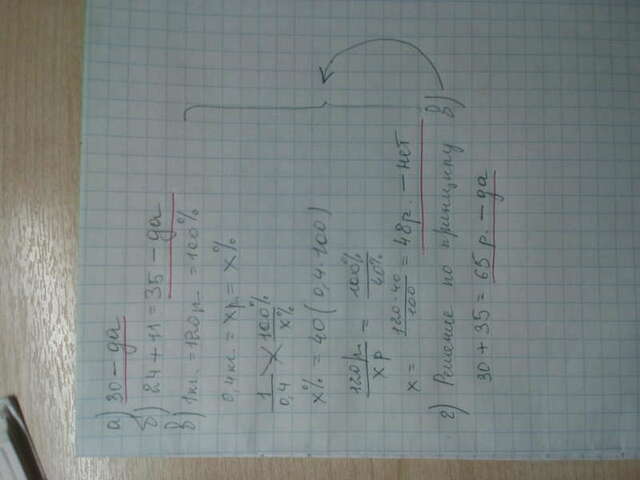 а) 30 - да
б) 24 + 11 = 35 - да
в) 1 кг. = 120 р. = 100%
0,4 кг. = x р. = x%
1/0,4 = 100%/x%
x% = 40 (0,4·100)
120 р./x р = 100%/40%
x = 120·40/100 = 48 р. - нет
г) Решение по принципу в)
30 + 35 = 65 р. - да